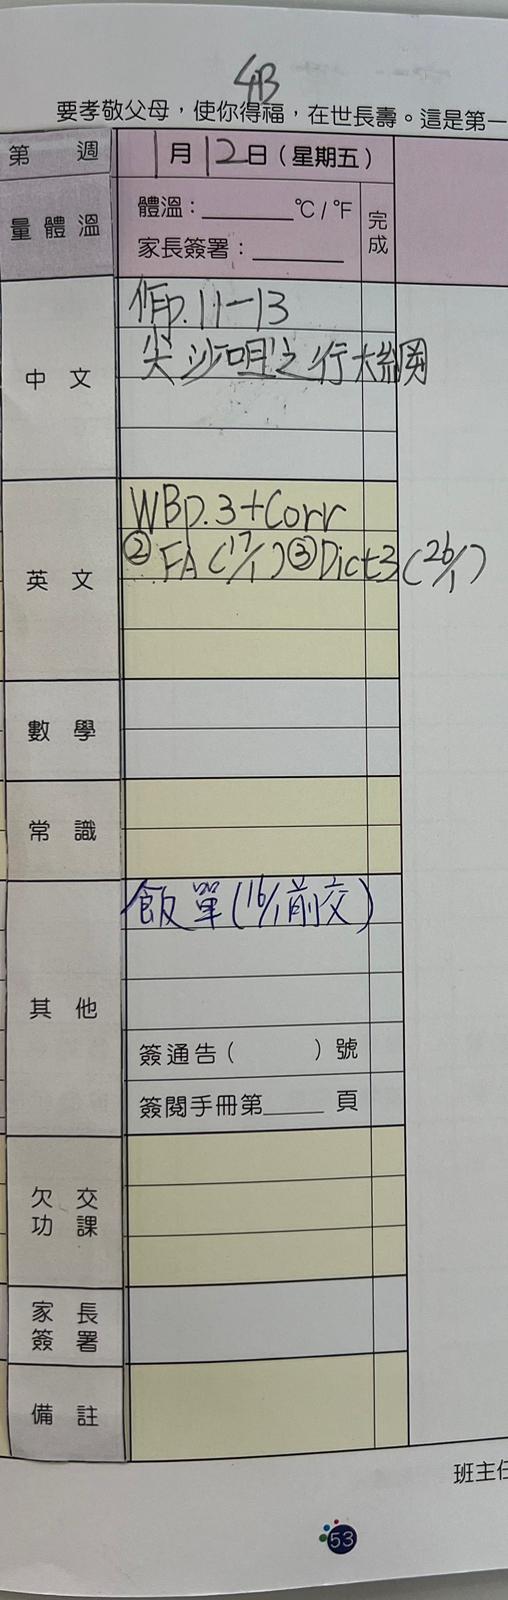 4B
要孝敬父母，使你得福，在世長壽。這是第一
第 週 1月12日（星期五）
量體溫 體溫：______°C/°F 完成
家長簽署：______
中文 作p.11-13
尖沙咀之行大綱
英文 WBp.3+Corr
②FA(17/1)③Dict3(26/1)
數學
常識
其他 飯單(16/1前交)
簽通告（ ）號
簽閱手冊第____頁
欠交功課
家長簽署
備註
班主任
53